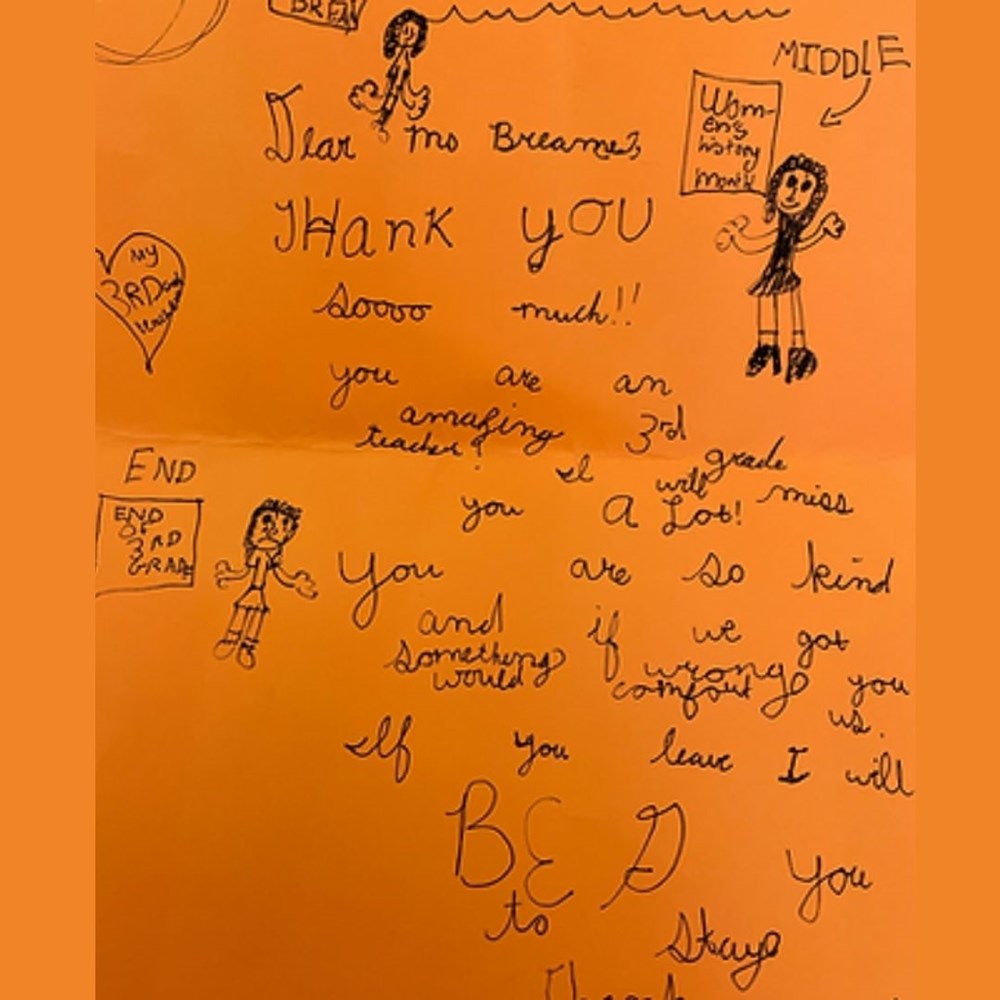 MIDDLE
Wom-
en's
history
month
Dear Ms Breames,
THanK yOU
soooo much!!
My
3RD
you are an
amazing 3rd grade
teacher! I will miss
you A Lot!
END
END
Of
3RD
GRADE
You are so kind
and if we got
something wrong you
would comfort us.
If you leave I will
BEG you
to Stay
Thank